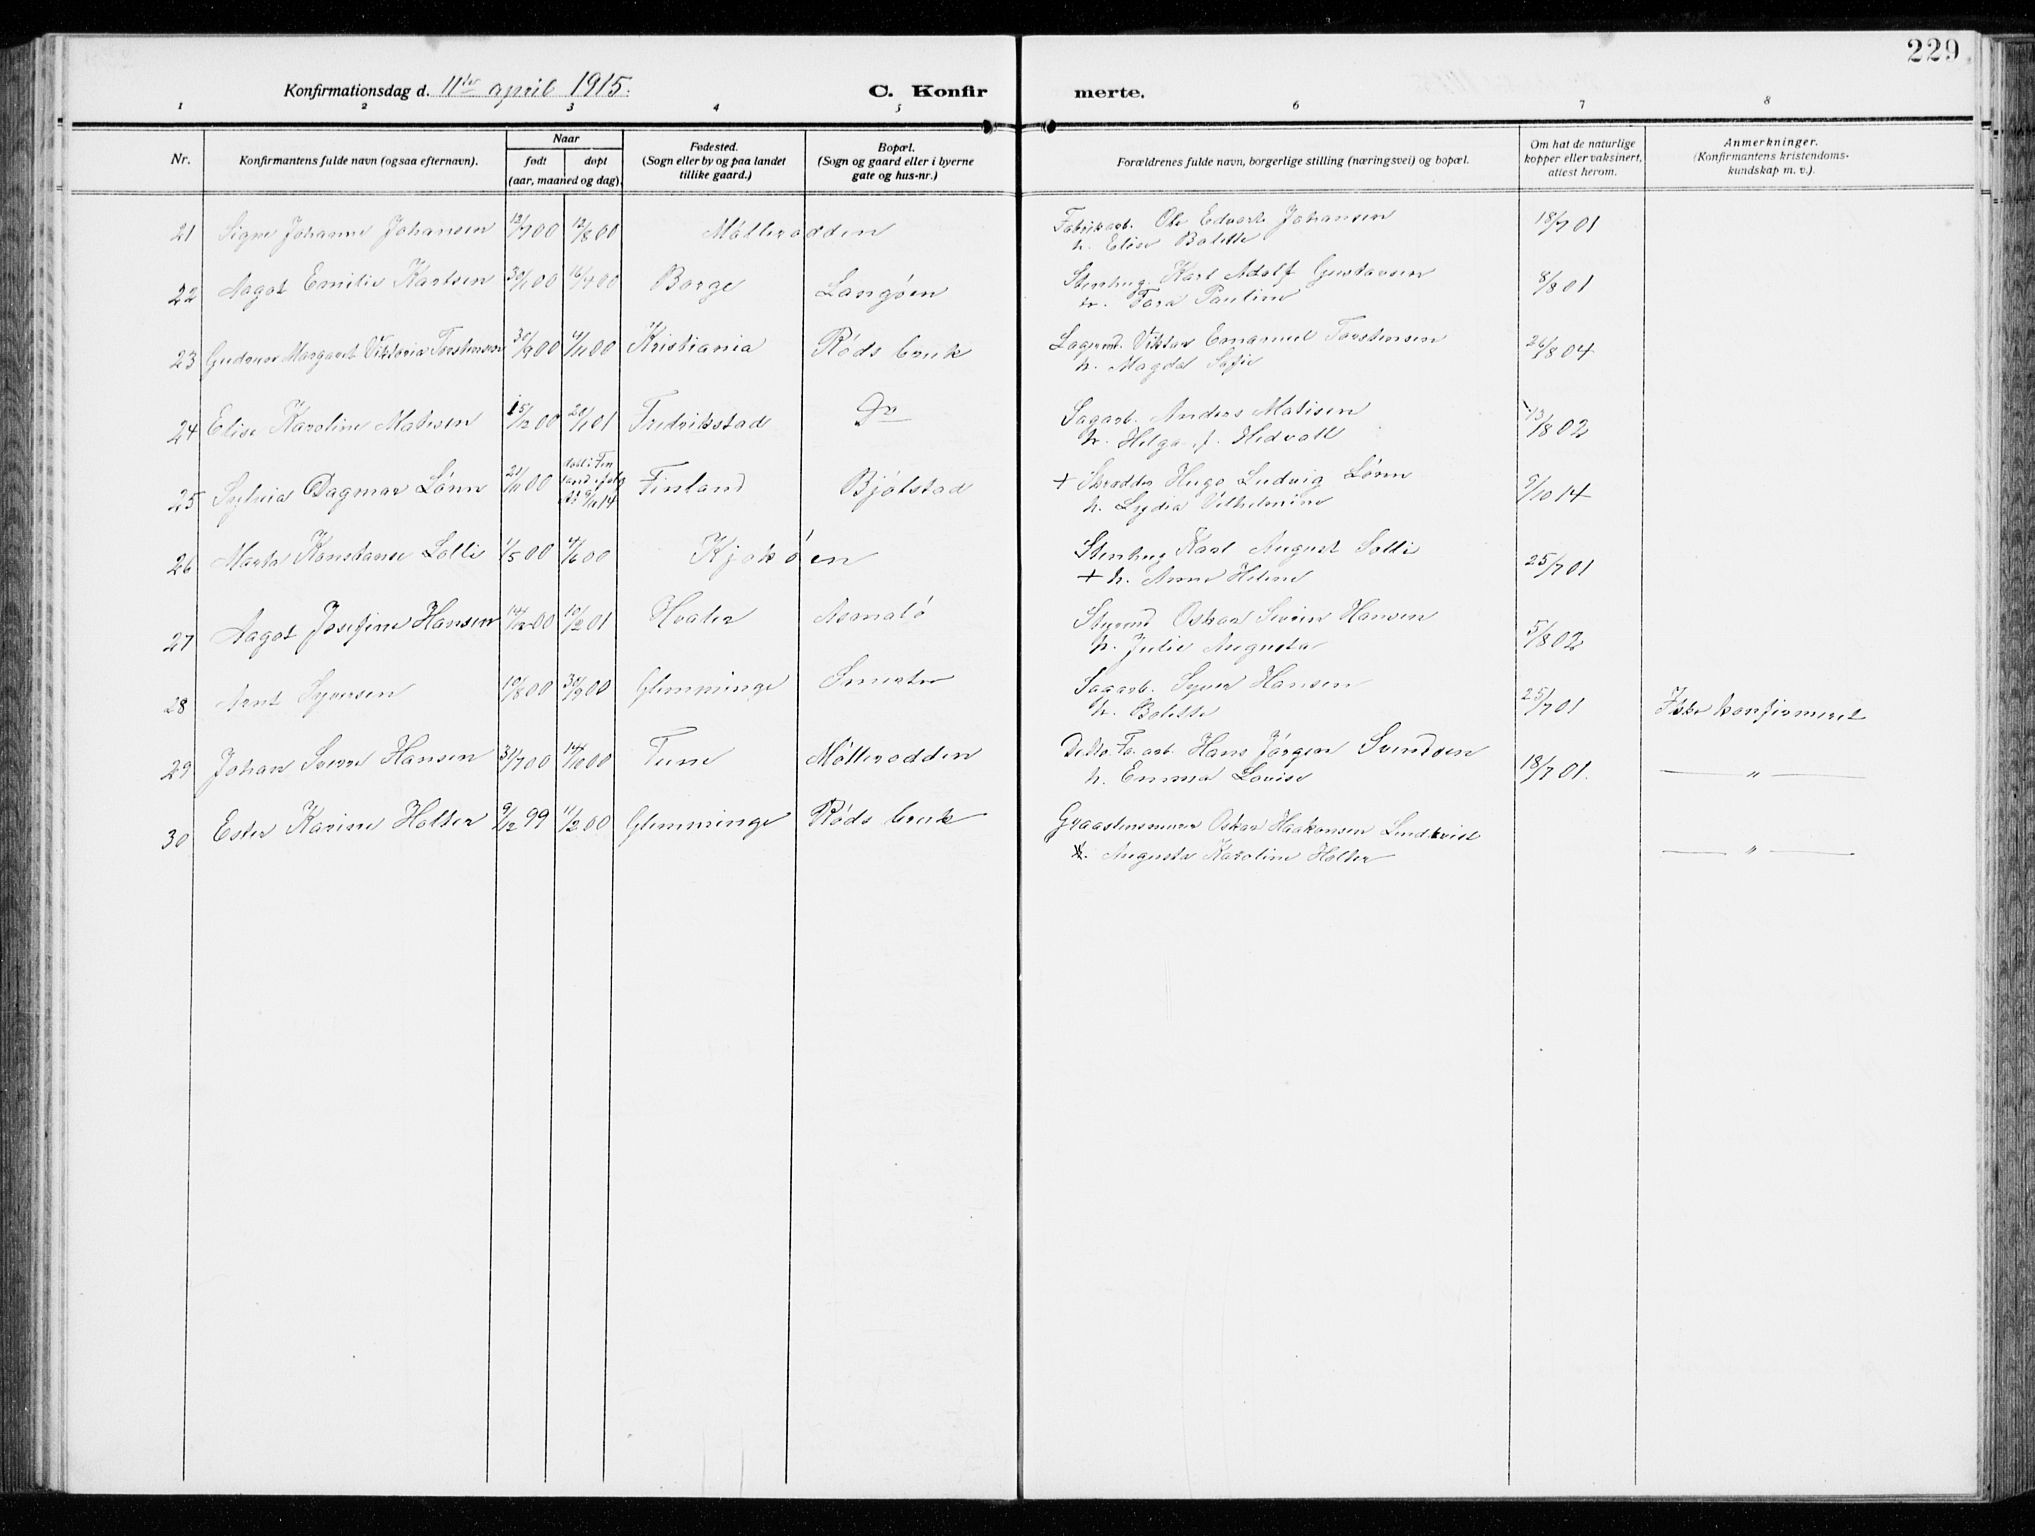 229
Konfirmationsdag d. 11te april 1915.
C. Konfirmerte.
1 2 3 4 5 6 7 8
Nr.
Konfirmantens fulde navn (ogsaa efternavn).
Naar
født
døpt
(aar, maaned og dag).
Fødested.
(Sogn eller by og paa landet
tillike gaard.)
Bopæl.
(Sogn og gaard eller i byerne
gate og hus-nr.)
Forældrenes fulde navn, borgerlige stilling (næringsvei) og bopæl.
Om hat de naturlige
kopper eller vaksinert,
attest herom.
Anmerkninger.
(Konfirmantens kristendoms-
kundskap m. v.).
21 Signe Johanne Johansen 12/7 00 12/8 00 Møllerodden Fabrikarb. Ole Edvart Johansen 18/7 01
h. Elise Bolette
22 Aagot Emilie Karlsen 30/1 00 16/4 00 Borge Langøen Stenhug. Karl Adolf Gustavsen 8/8 01
h. Tora Pauline
23 Gudrun Margaret Viktoria Torstensen 30/9 00 4/11 00 Kristiania Røds bruk Lagermd. Viktor Emanuel Torstensen 26/8 04
h. Magda Sofie
24 Elise Karoline Matisen 15/12 00 20/1 01 Fredrikstad Do Sagarb. Anders Matisen 13/8 02
h. Helga f. Hedvall
25 Sylvia Dagmar Lönn 21/11 00 døbt i Fin
land ifølg
9/4 14 Finland Bjølstad + Skrædder Hugo Ludvig Lönn 9/10 14
h. Lydia Vilhelmine
26 Marta Konstanse Solli 1/5 00 4/6 00 Kjøkøen Stenhug Karl August Solli 25/7 01
+ h. Anne Helene
27 Aagot Josefine Hansen 14/12 00 10/2 01 Hvaler Asmalø Styrmd Oskar Severin Hansen 5/8 02
h. Julie Augusta
28 Arnt Syversen 10/8 00 30/9 00 Glemminge Smertu Sagarb. Syver Hansen 25/7 01 Ikke konfirmeret
h. Bolette
29 Johan Sverre Hansen 31/7 00 14/10 00 Tune Møllerodden Fa. arb. Hans Jørgen Svendsen 18/7 01. — " —
h. Emma Lovise
30 Ester Karine Holter 9/12 99 11/2 00 Glemminge Røds bruk Graastensmurer Oskar Haakonsen Lindkvist
Augusta Karoline Holter — " —